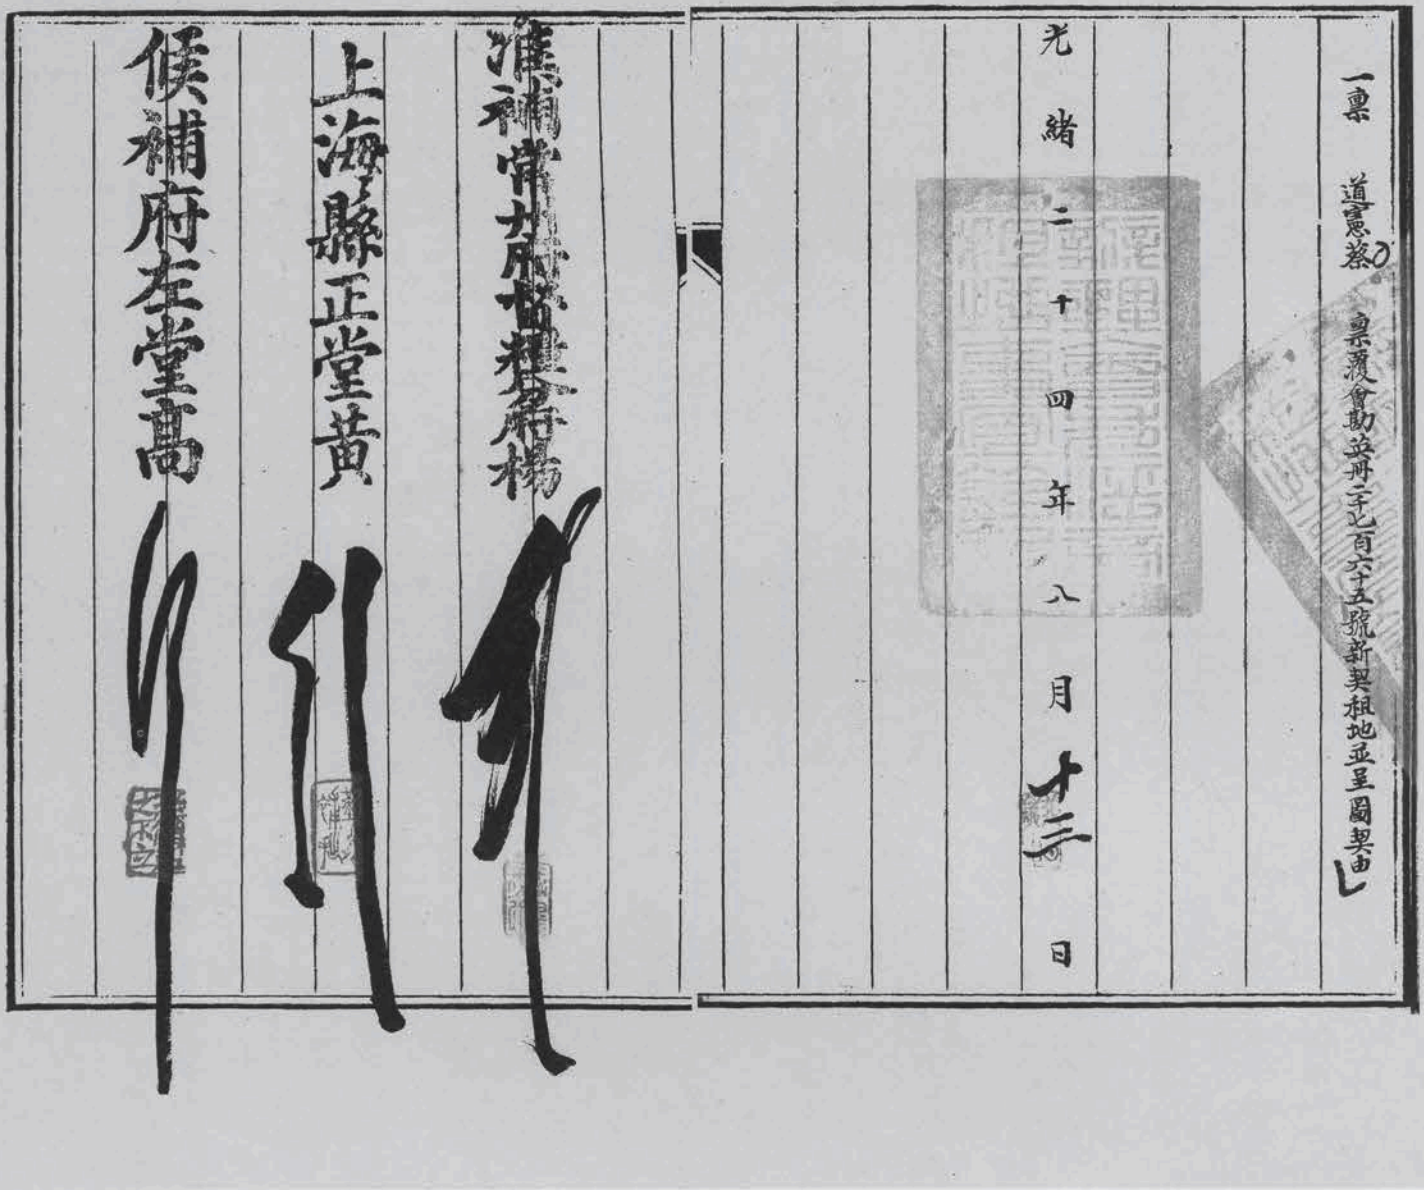 一稟 道憲蔡 稟覆會勘英冊二千七百六十五號新契租地並呈圖契由
光緒二十四年八月十三日
准補常州府督糧分府楊
上海縣正堂黃
候補府左堂高